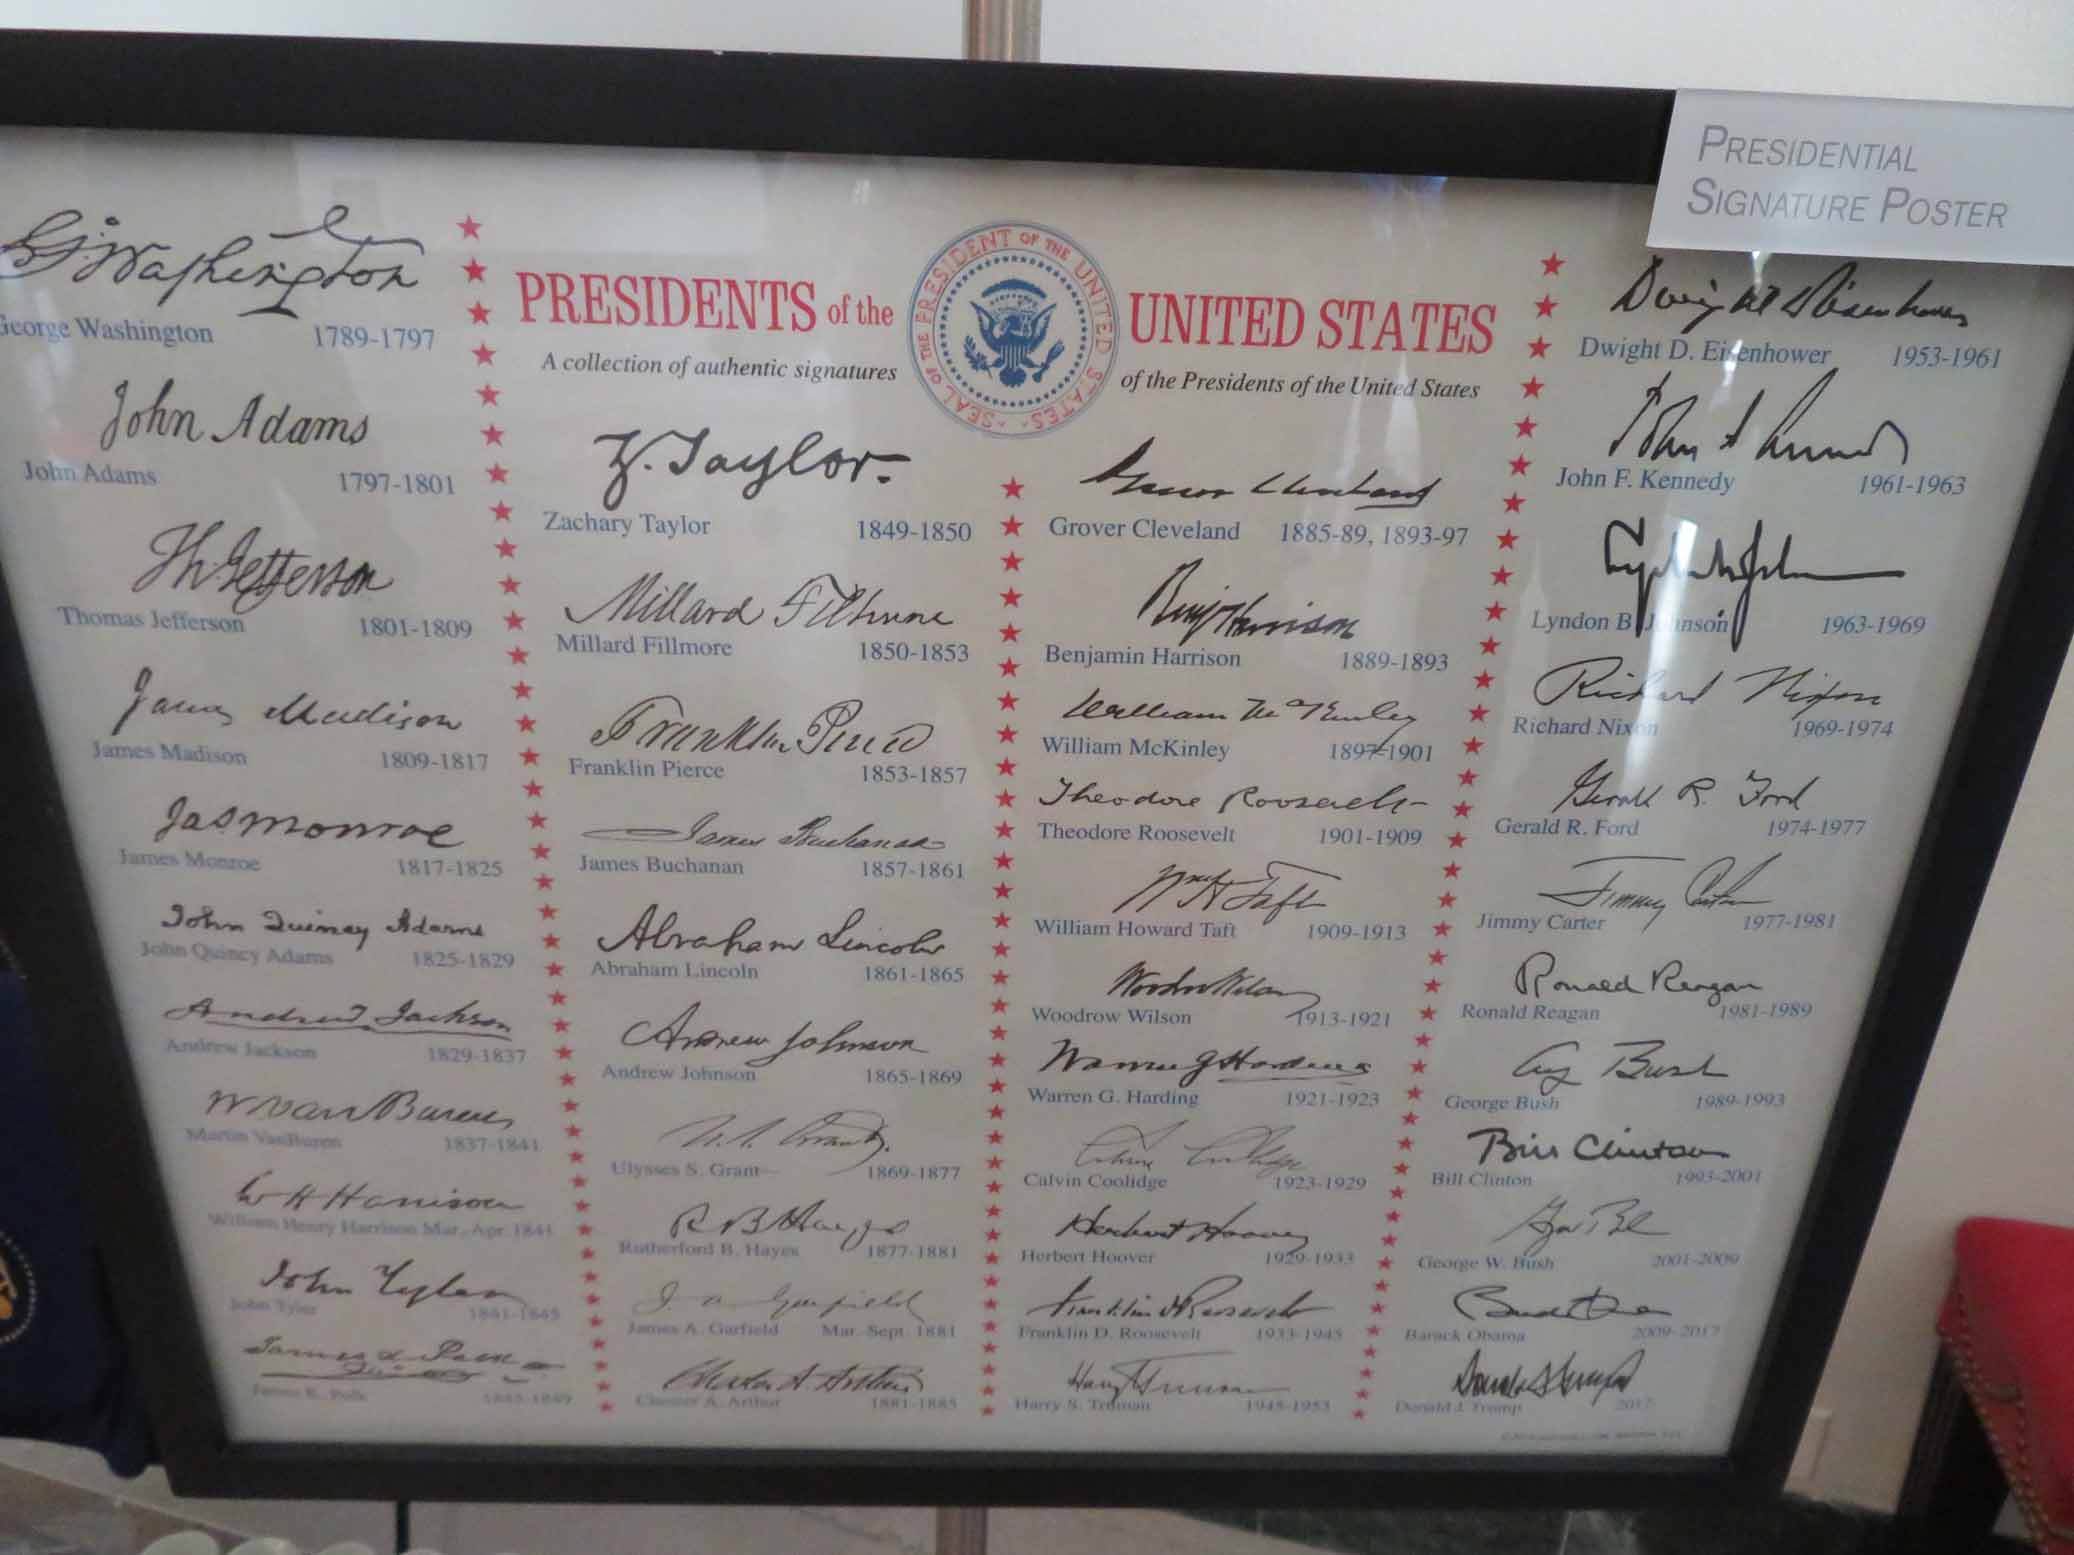 PRESIDENTIAL
SIGNATURE POSTER
PRESIDENTS of the UNITED STATES
SEAL OF THE PRESIDENT OF THE UNITED STATES
A collection of authentic signatures of the Presidents of the United States
G. Washington
George Washington 1789-1797
John Adams
John Adams 1797-1801
Th. Jefferson
Thomas Jefferson 1801-1809
James Madison
James Madison 1809-1817
Jas Monroe
James Monroe 1817-1825
John Quincy Adams
John Quincy Adams 1825-1829
Andrew Jackson
Andrew Jackson 1829-1837
M Van Buren
Martin VanBuren 1837-1841
W H Harrison
William Henry Harrison Mar.-Apr. 1841
John Tyler
John Tyler 1841-1845
James K. Polk
James K. Polk 1845-1849
Z. Taylor.
Zachary Taylor 1849-1850
Millard Fillmore
Millard Fillmore 1850-1853
Franklin Pierce
Franklin Pierce 1853-1857
James Buchanan
James Buchanan 1857-1861
Abraham Lincoln
Abraham Lincoln 1861-1865
Andrew Johnson
Andrew Johnson 1865-1869
U. S. Grant
Ulysses S. Grant 1869-1877
R B Hayes
Rutherford B. Hayes 1877-1881
J A Garfield
James A. Garfield Mar.-Sept. 1881
Chester A Arthur
Chester A. Arthur 1881-1885
Grover Cleveland
Grover Cleveland 1885-89, 1893-97
Benj Harrison
Benjamin Harrison 1889-1893
William McKinley
William McKinley 1897-1901
Theodore Roosevelt
Theodore Roosevelt 1901-1909
Wm H Taft
William Howard Taft 1909-1913
Woodrow Wilson
Woodrow Wilson 1913-1921
Warren G Harding
Warren G. Harding 1921-1923
Calvin Coolidge
Calvin Coolidge 1923-1929
Herbert Hoover
Herbert Hoover 1929-1933
Franklin D Roosevelt
Franklin D. Roosevelt 1933-1945
Harry S Truman
Harry S. Truman 1945-1953
Dwight D Eisenhower
Dwight D. Eisenhower 1953-1961
John F Kennedy
John F. Kennedy 1961-1963
Lyndon B Johnson
Lyndon B. Johnson 1963-1969
Richard Nixon
Richard Nixon 1969-1974
Gerald R. Ford
Gerald R. Ford 1974-1977
Jimmy Carter
Jimmy Carter 1977-1981
Ronald Reagan
Ronald Reagan 1981-1989
G Bush
George Bush 1989-1993
Bill Clinton
Bill Clinton 1993-2001
George W. Bush 2001-2009
Barack Obama
Barack Obama 2009-2017
Donald J Trump
Donald J. Trump 2017-